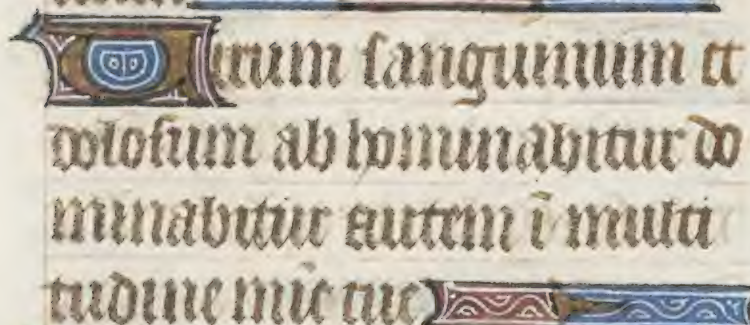 Virum sanguinium et
dolosum ab hominabitur do
minabitur autem ī multi
tudine mīe tue